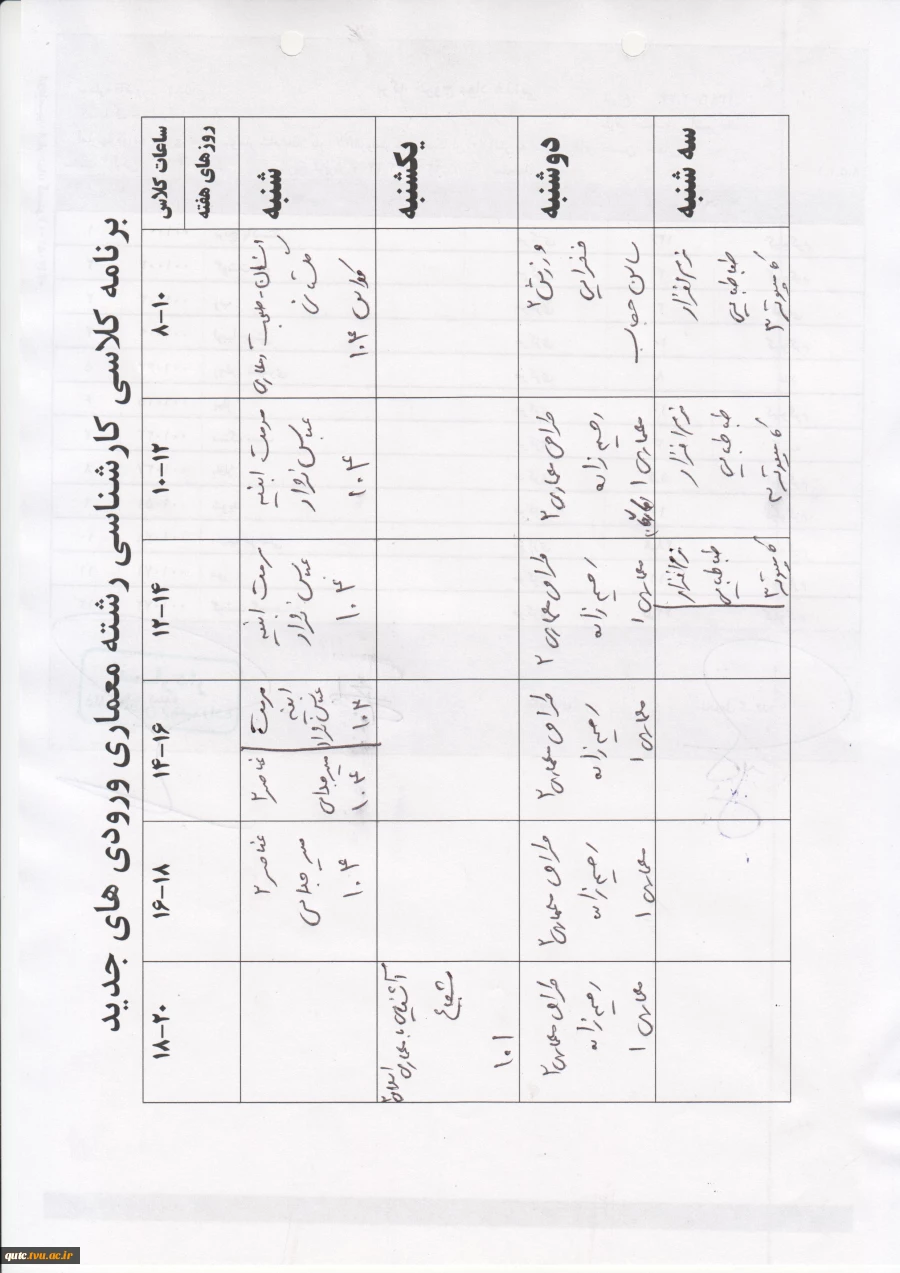 برنامه کلاسی کارشناسی رشته معماری ورودی های جدید
ساعات کلاس
۸-۱۰
۱۰-۱۲
۱۲-۱۴
۱۴-۱۶
۱۶-۱۸
۱۸-۲۰
روزهای هفته
شنبه
انسان - طبیعت - معماری
کلاس ۱۰۴
مرمت ابنیه
عباس نژاد
۱۰۴
مرمت ابنیه
عباس نژاد
۱۰۴
مرمت
ابنیه
عباس نژاد
۱۰۴
عناصر ۲
۱۰۴
عناصر ۲
۱۰۴
یکشنبه
آشنایی با معماری اسلامی ۲
شعاع
۱۰۱
دوشنبه
ورزش ۲
سالن حجاب
طراحی معماری ۲
رحیم زاده
معماری ۱
طراحی معماری ۲
رحیم زاده
معماری ۱
طراحی معماری ۲
رحیم زاده
معماری ۱
طراحی معماری ۲
رحیم زاده
معماری ۱
طراحی معماری ۲
رحیم زاده
معماری ۱
سه شنبه
نرم افزار
طباطبایی
کامپیوتر ۳
نرم افزار
طباطبایی
کامپیوتر ۳
نرم افزار
طباطبایی
کامپیوتر ۳
qutc.tvu.ac.ir